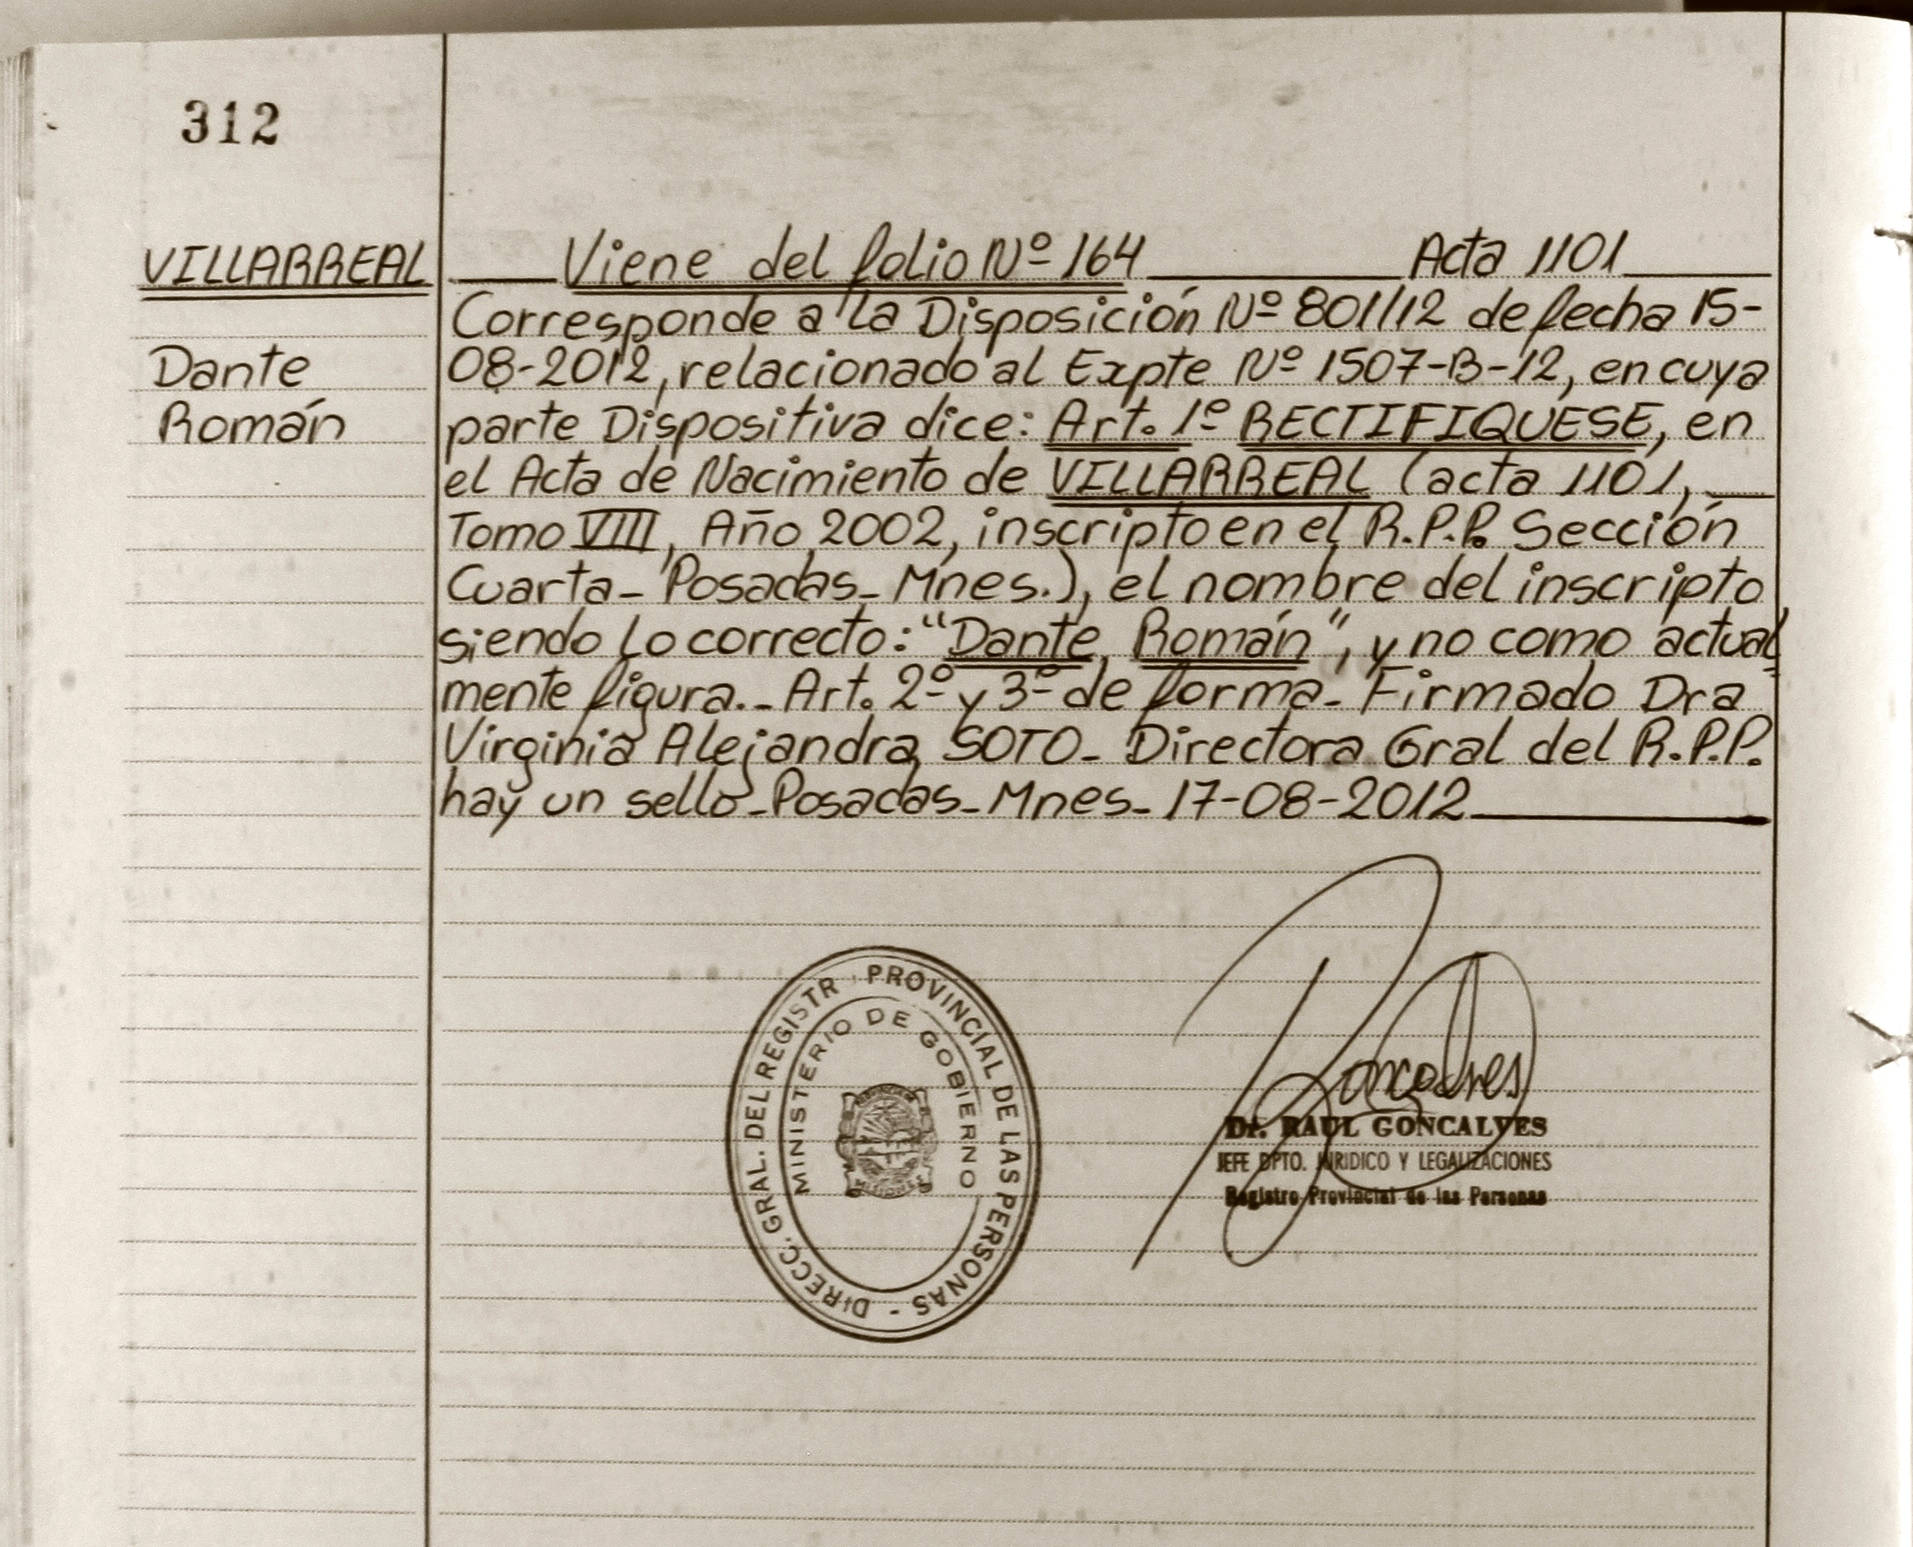 312
VILLARREAL
Dante
Román
Viene del folio Nº 164 Acta 1101
Corresponde a la Disposición Nº 801/12 de fecha 15-
08-2012, relacionado al Expte Nº 1507-B-12, en cuya
parte Dispositiva dice: Art. 1º RECTIFIQUESE, en
el Acta de Nacimiento de VILLARREAL (acta 1101,
Tomo VIII, Año 2002, inscripto en el R.P.P. Sección
Cuarta- Posadas- Mnes.), el nombre del inscripto
siendo lo correcto: "Dante Román", y no como actual
mente figura.- Art. 2º y 3º de forma- Firmado Dra
Virginia Alejandra SOTO- Directora Gral del R.P.P.
hay un sello-Posadas-Mnes- 17-08-2012
DIRECC. GRAL. DEL REGISTR PROVINCIAL DE LAS PERSONAS -
MINISTERIO DE GOBIERNO
MISIONES
Goncalves
Dr. RAUL GONCALVES
JEFE DPTO. JURIDICO Y LEGALIZACIONES
Registro Provincial de las Personas